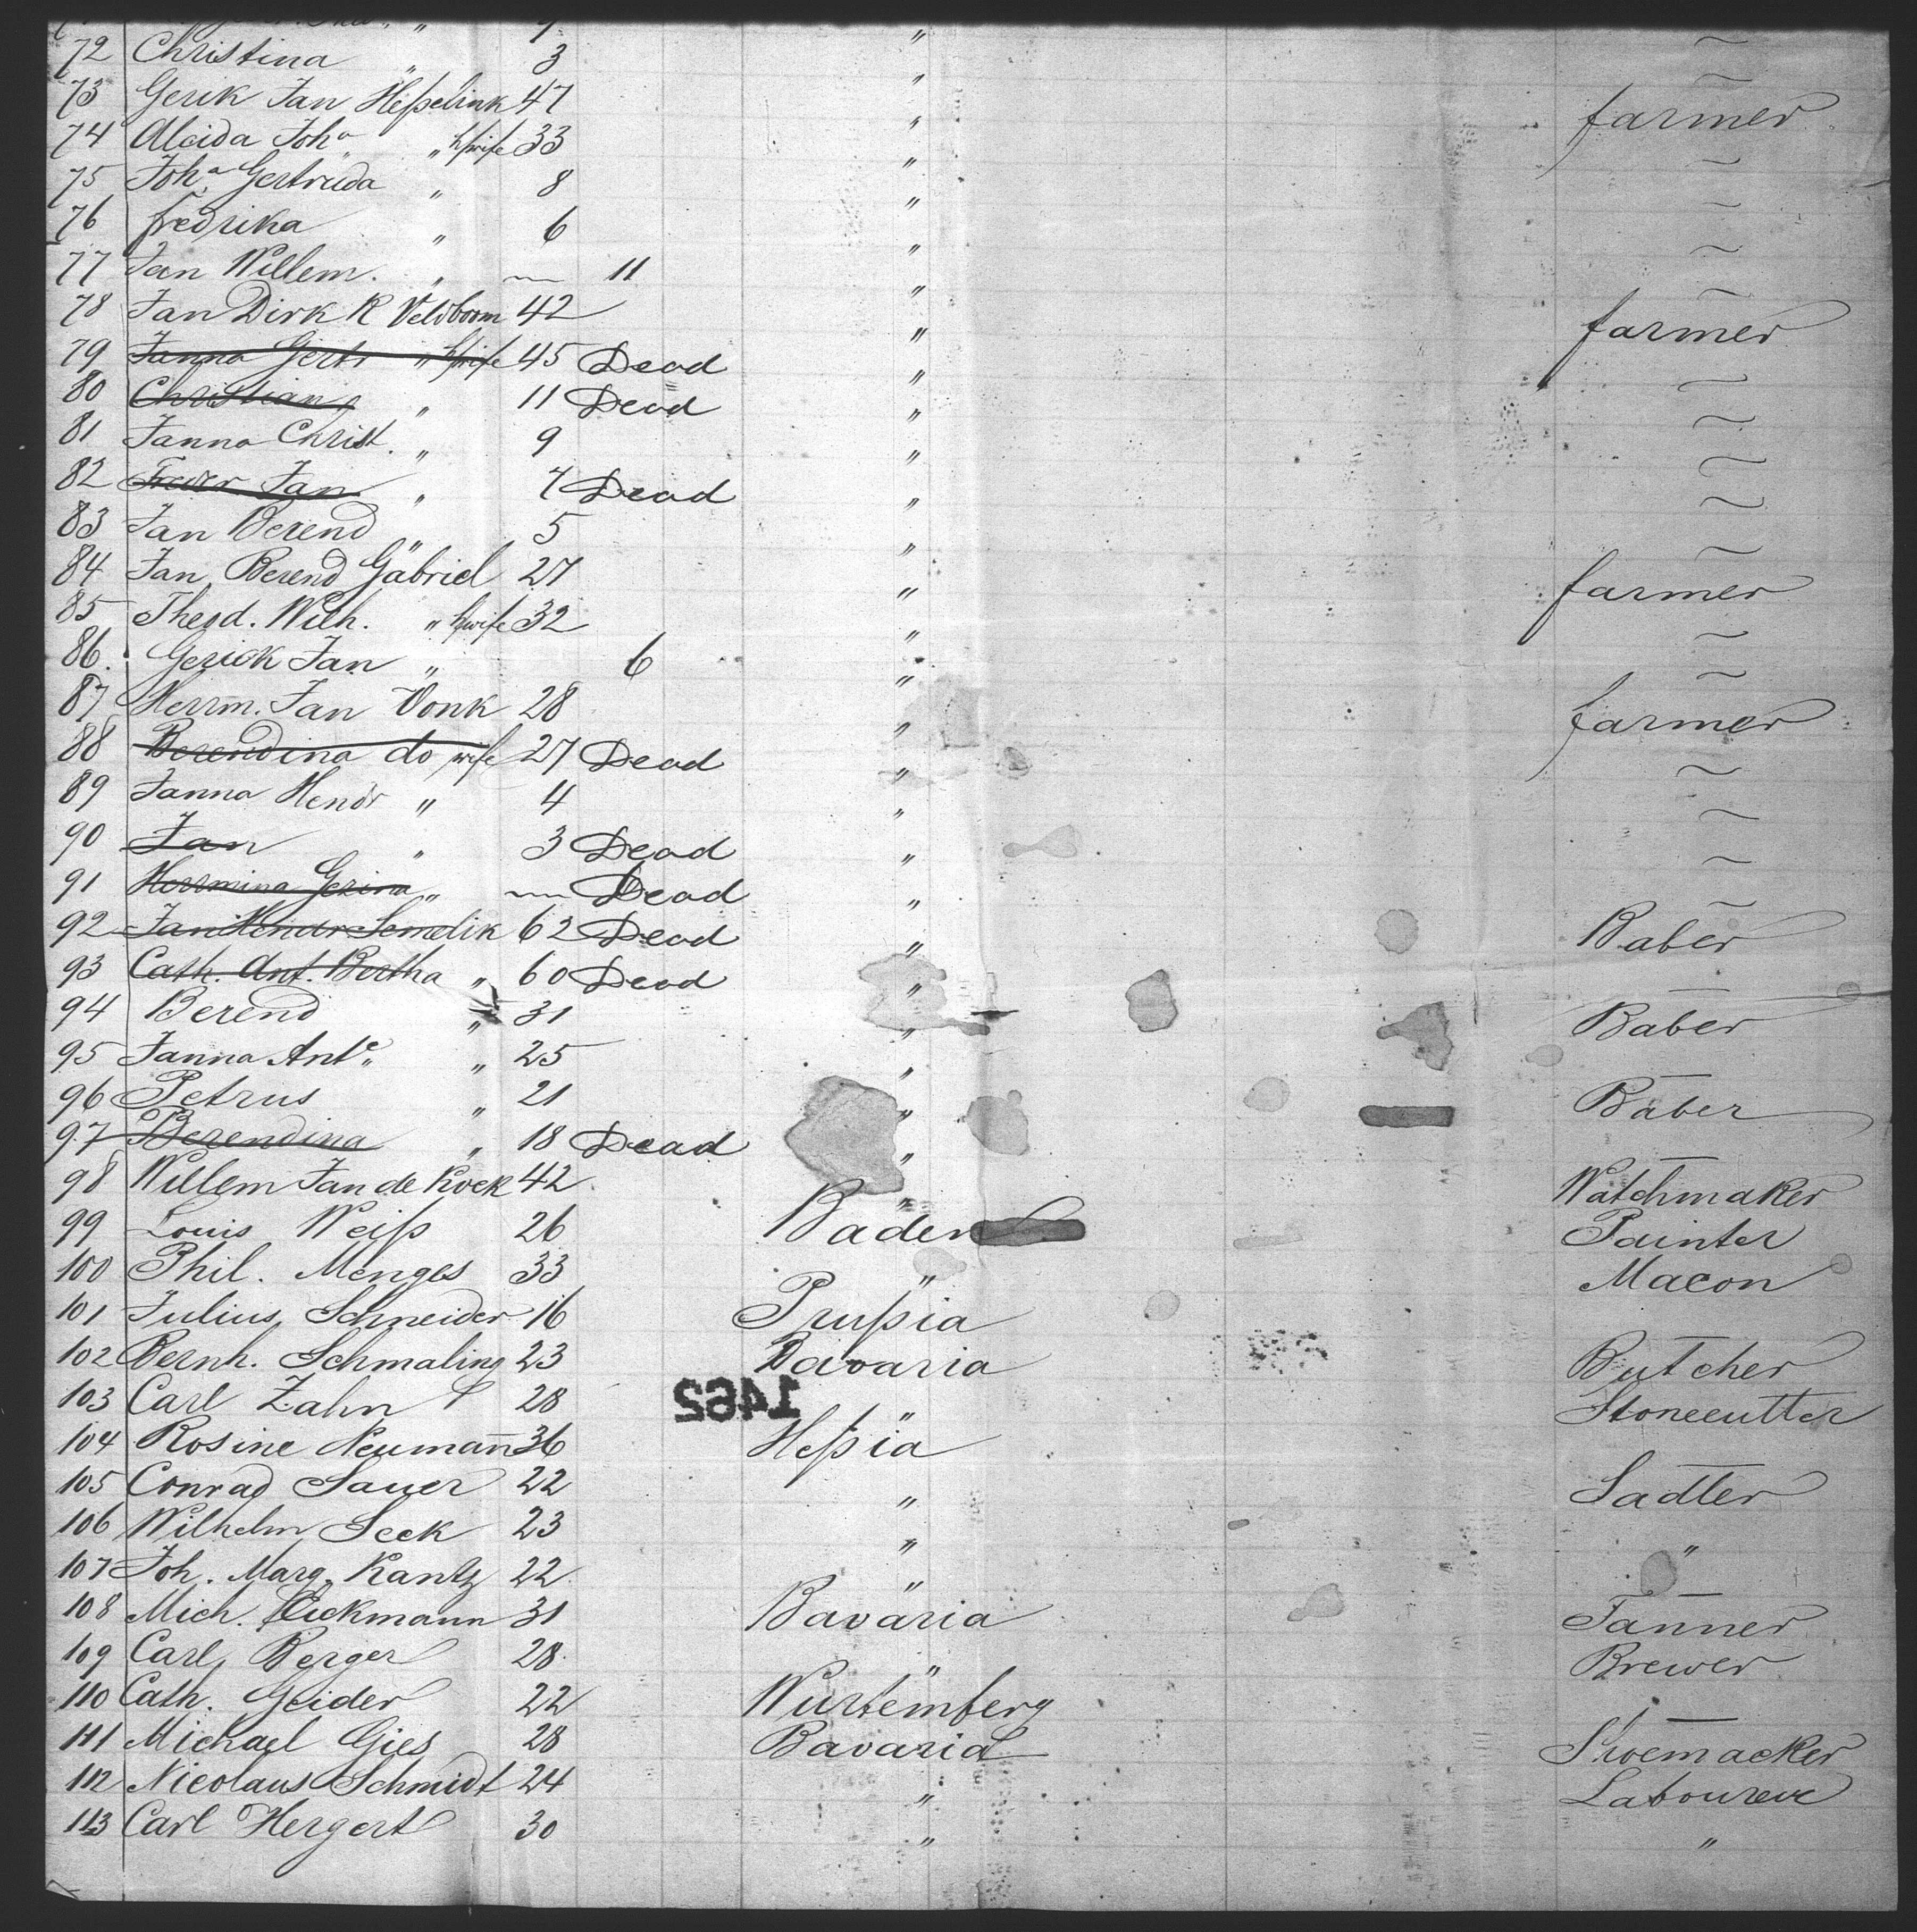 72 Christina " 3 " ~
73 Gerik Jan Heßelink 47 " farmer
74 Aleida Joh.a " h/wife 33 " ~
75 Joh.a Gertruda " 8 " ~
76 fredrika " 6 " ~
77 Jan Willem. " — 11 " ~
78 Jan Dirk R Veldboom 42 " farmer
79 Janna Gertr " h/wife 45 Dead " ~
80 Christian " 11 Dead " ~
81 Janna Christ. " 9 " ~
82 Jan " 7 Dead " ~
83 Jan Berend " 5 " ~
84 Jan Berend Gabriel 27 " farmer
85 Theod. Wilh. " h/wife 32 " ~
86. Gerick Jan " 6 " ~
87 Herrm. Jan Vonk 28 " farmer
88 Berendina do wife 27 Dead " ~
89 Janna Hendr " 4 " ~
90 Jan " 3 Dead " ~
91 Herrmina Gezina " — Dead " ~
92 Jan Hendr Semelik 62 Dead " Baber
93 Cath. Ant. Bertha " 60 Dead " —
94 Berend " 31 " Baber
95 Janna Ant.e " 25 " —
96 Petrus " 21 " Baber
97 Berendina " 18 Dead " —
98 Willem Jan de Kock 42 " Watchmaker
99 Louis Weiß 26 Baden Painter
100 Phil. Menges 33 " Macon
101 Julius Schneider 16 Prußia —
102 Bernh. Schmaling 23 Bavaria Butcher
1462
103 Carl Zahn 28 " Stonecutter
104 Rosine Neumañ 36 Heßia —
105 Conrad Sauer 22 " Sadler
106 Wilhelm Seek 23 " "
107 Joh. Marg. Kantz 22 " —
108 Mich. Eickmann 31 Bavaria Tanner
109 Carl Berger 28 " Brewer
110 Cath. Geider 22 Wurtemberg —
111 Michael Gies 28 Bavaria Shoemacker
112 Nicolaus Schmidt 24 "
113 Carl Hergert 30 " "